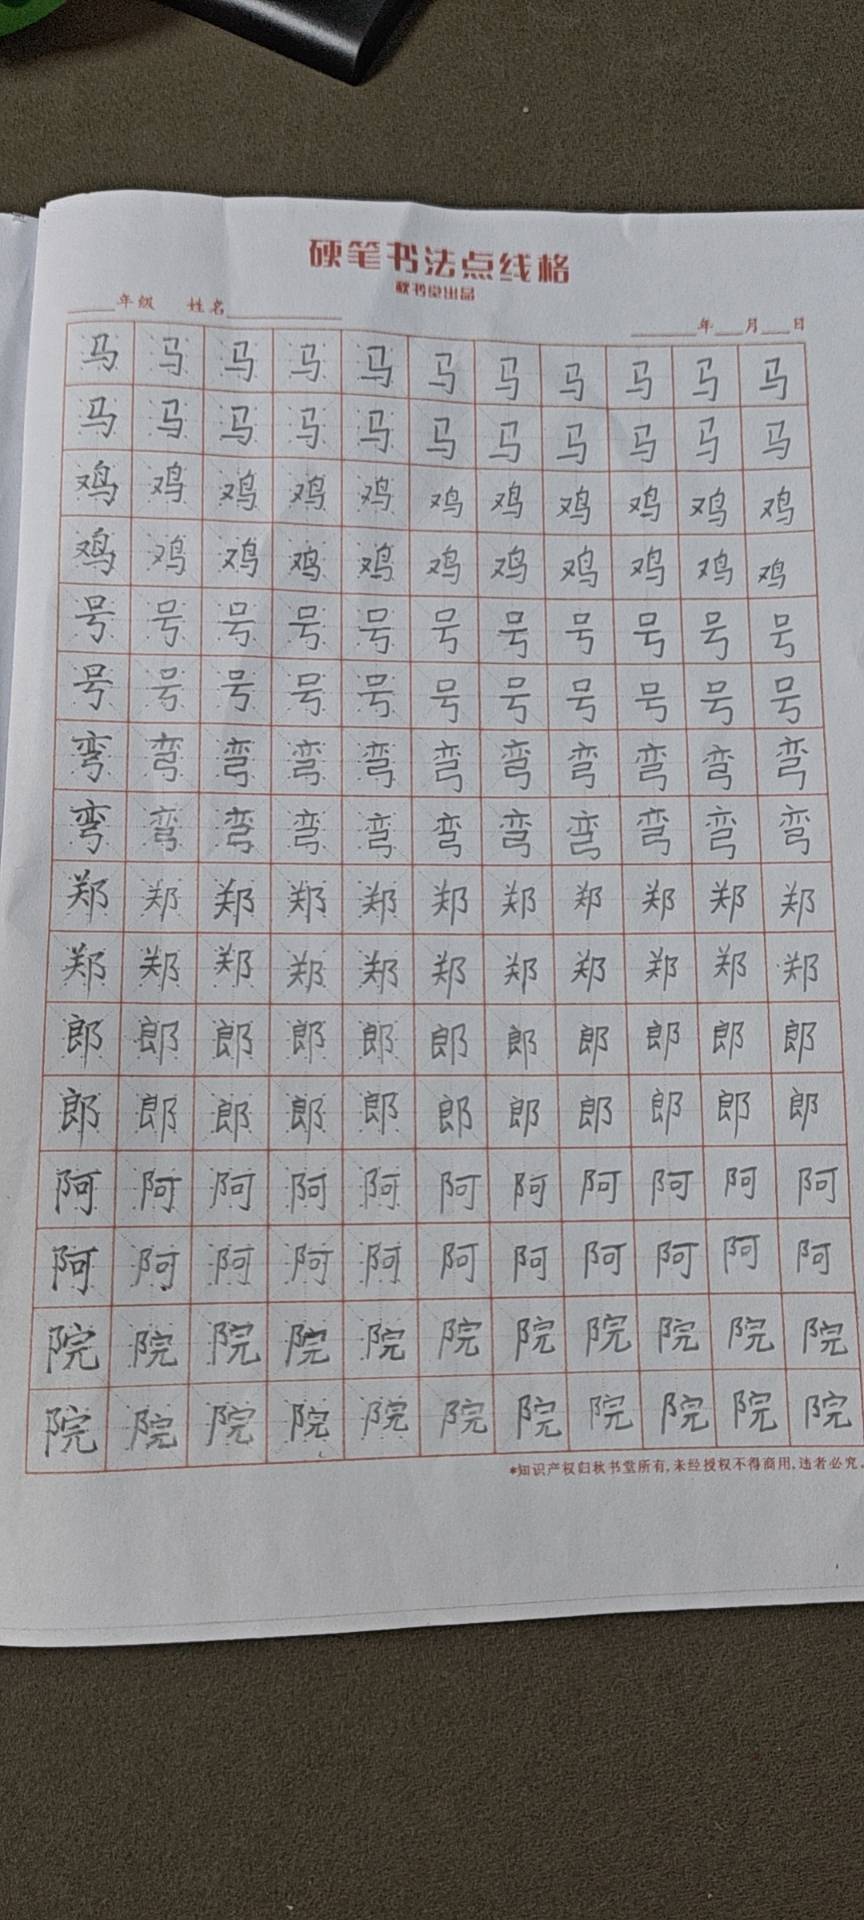 硬笔书法点线格
秋书堂出品
年级 姓名 年 月 日
马马马马马马马马马马马
马马马马马马马马马马马
鸡鸡鸡鸡鸡鸡鸡鸡鸡鸡鸡
鸡鸡鸡鸡鸡鸡鸡鸡鸡鸡鸡
号号号号号号号号号号号
号号号号号号号号号号号
弯弯弯弯弯弯弯弯弯弯弯
弯弯弯弯弯弯弯弯弯弯弯
郑郑郑郑郑郑郑郑郑郑郑
郑郑郑郑郑郑郑郑郑郑郑
郎郎郎郎郎郎郎郎郎郎郎
郎郎郎郎郎郎郎郎郎郎郎
阿阿阿阿阿阿阿阿阿阿阿
阿阿阿阿阿阿阿阿阿阿阿
院院院院院院院院院院院
院院院院院院院院院院院
*知识产权归秋书堂所有,未经授权不得商用,违者必究.